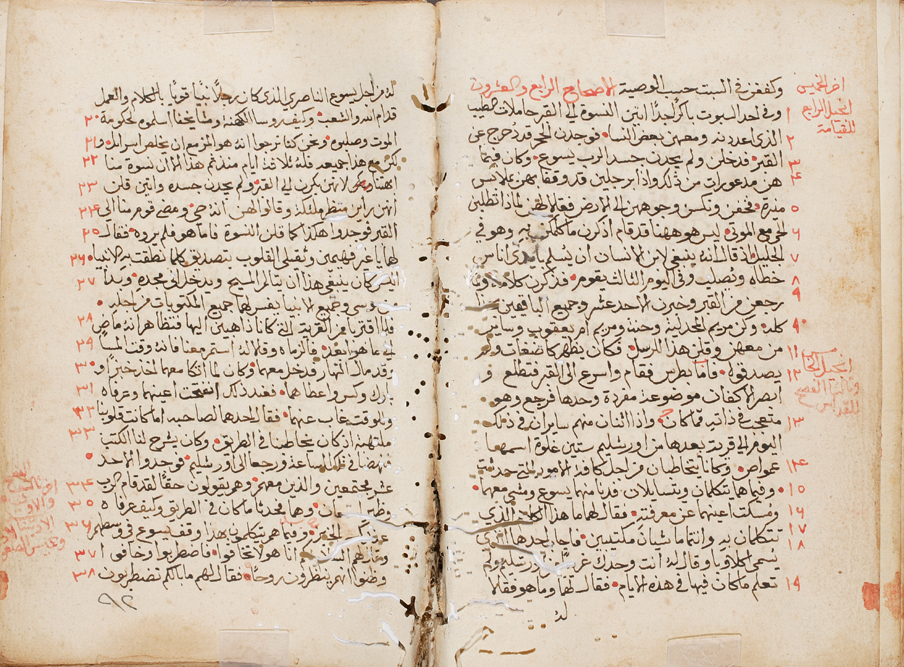 وكففن في السبت حسب الوصية الاصحاح الرابع والعشرون
وفي احد السبوت باكرًا جدًا اتين النسوة الي القبر حاملات الطيب
الذي اعددنه ومعهن بعض النسا فوجدن الحجر قد دحرج عن
القبر فدخلن ولم يجدن جسد الرب يسوع وكان فيما
هن مذعورات من ذلك واذا برجلين قد وقفا بهن بملابس
منيرة فخفن ونكسن وجوههن الي الارض فقالا لهن لماذا تطلبن
الحي مع الموتي ليس هو ههنا قد قام اذكرن ما كلمكن به وهو في
الجليل اذ قال انه ينبغي لابن الانسان ان يسلم بايدي اناس
خطاه ويصلب وفي اليوم الثالث يقوم فذكرن كلامه ولما
رجعن من القبر وخبرن الاحد عشر وجميع الباقين
كله وكن مريم المجدلية وحنة ومريم ام يعقوب وساير
من معهن وقلن هذا للرسل فكان يظهر كلامهن
يصدقوه فاما بطرس فقام واسرع الي القبر فتطلع
ابصر الاكفان موضوعة مفردة وحدها فرجع وهو
متعجب في ذاته مما كان واذا اثنان منهم سايران في ذلك
اليوم الي قرية بعدها من اورشليم ستين غلوة اسمها
عمواص وكانا يتخاطبان من اجل كافة الامور التي حدثت
وفيما هما يتكلمان ويتسايلان فدنا منهما يسوع ومشي معهما
ومسكت اعينهما عن معرفته فقال لهما ما هذا الكلام الذي
تتكلمان به وانتما ماشيان مكتيبين فاجاب احدهما الذي
يسمي اكلاوبا وقال له انت وحدك غريب اورشليم ولم
تعلم ما كان فيها في هذه الايام فقال لهما وما هو فقالا
له
اخر الخميس
انجيل الرابع
للقيامة
١
٢
٣
٤
٥
٦
٧
٨
٩
١٠
١١
١٢
١٣
١٤
١٥
١٦
١٧
١٨
١٩
له من اجل يسوع الناصري الذي كان رجلا نبيًا قويًا بالكلام والعمل
قدام الله والشعب وكيف روسا الكهنة ومشايخنا اسلموه لحكومة
الموت وصلبوه ونحن كنا نرجوا انه هو المزمع ان يخلص اسرايل
لكن مع هذا جميعه فله ثلاثة ايام منذ تم هذا الا ان نسوة منا
ابهتننا لانهن بكرن الي القبر ولم يجدن جسده واتين قلن
انهن راين منظر ملايكة وقالوا لهن انه حي ومضي قوم منا الي
القبر فوجدوا هكذا كما قلن النسوة فاما هو فلم يروه فقال
لهما يا غير فهيمين وثقيلي القلوب بتصديق كلما نطقت به الانبيا
اليس كان ينبغي هذا ان يتالم المسيح ويدخل الي مجده وبدأ
من موسي وجميع الانبيا يفسر لهما جميع المكتوبات من اجله
فلما اقتربا من القرية التي كانا ذاهبين اليها فتظاهر انه ماض
الي ما هو ابعد فالزماه وقالا له استمر معنا فانه وقت المسا
وقد مال النهار فدخل معهما وكان لما اتكا معهما اخذ خبزا و
بارك وكسر واعطاهما فعند ذلك انفتحت اعينهما وعرفاه
وللوقت غاب عنهما فقال احدهما لصاحبه اما كانت قلوبنا
ملتهبة اذ كان يخاطبنا في الطريق وكان يشرح لنا الكتب
فنهضا في تلك الساعة ورجعا الي اورشليم فوجدوا الاحد
عشر مجتمعين والذين معهم وهم يقولون حقًا لقد قام الرب
وظهر وهما يحدثا ما كان في الطريق وكيف عرفاه
الخبز وفيما هم يتكلمون بهذا وقف يسوع في وسطهم
وقال لهم انا هو لا تخافوا فاضطربوا وخافوا
وظنوا انهم ينظرون روحًا فقال لهم ما بالكم تضطربون
٢٠
٢١
٢٢
٢٣
٢٤
٢٥
٢٦
٢٧
٢٨
٢٩
٣٠
٣١
٣٢
٣٣
٣٤
٣٥
٣٦
٣٧
٣٨